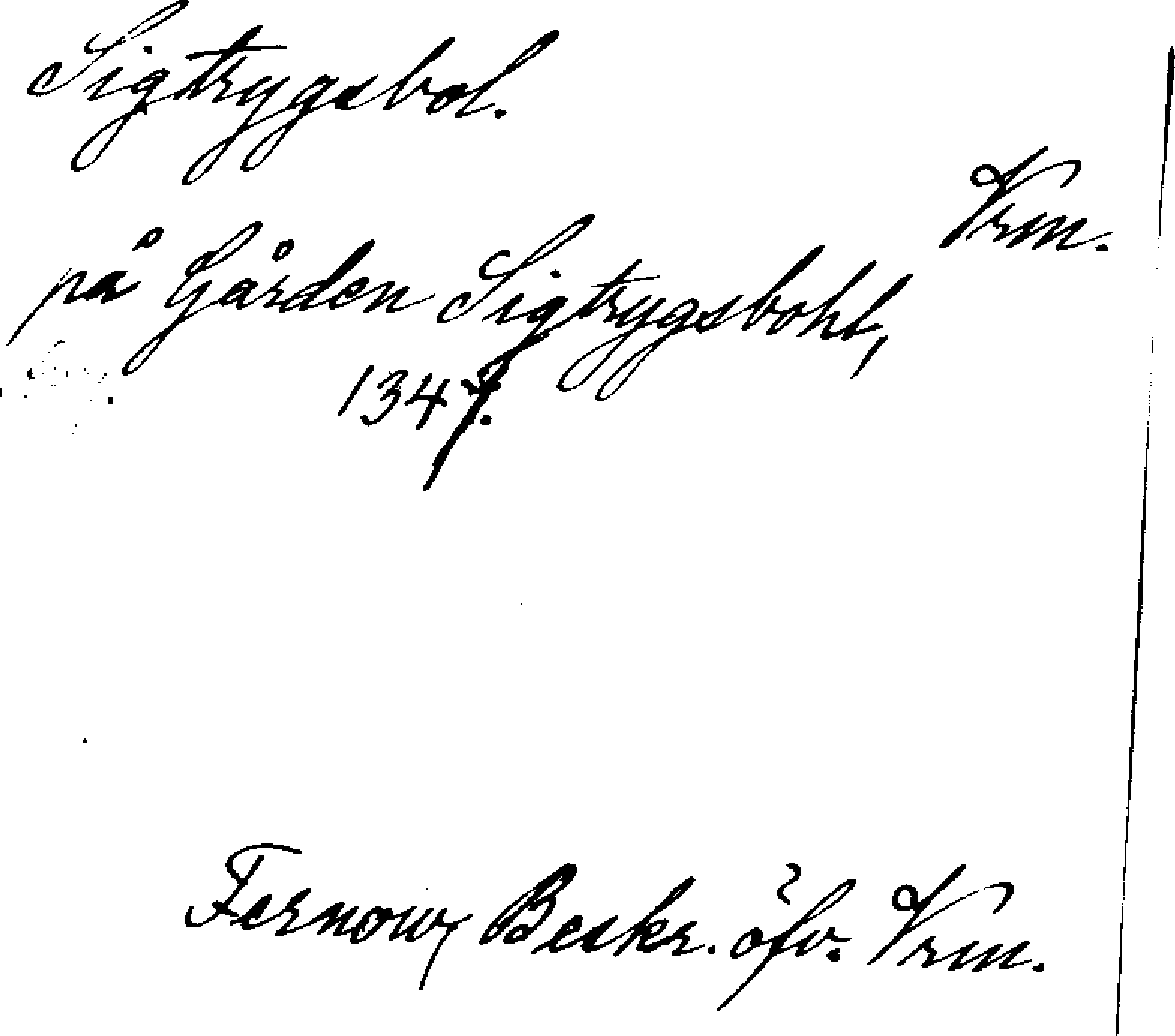 Sigtrygsbol.
Vrm.
på Gården Sigtrygsbohl,
1347.
Fernow, Beskr. öfv. Vrm.